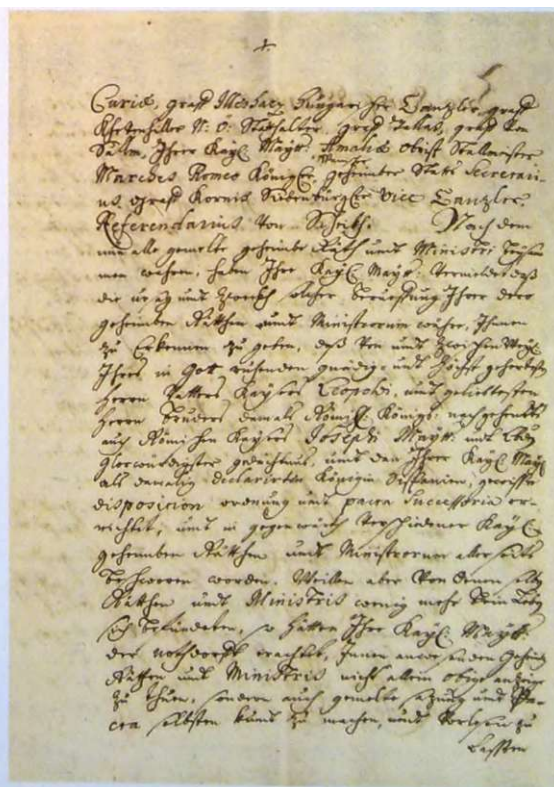 Curiæ, graff Illeshazÿ Hungarischer Canzler, graff
Khevenhiller N: Ö: Statthalter, graff Gallas, graff von
Salm, Ihrer Kayl. Mayt. Amaliæ Obrist Stallmeister
Marches Romeo Königl. geheimber Stats Secretari-
us, graff Kornis Sibenbürgl. Vice Canzler,
Referendarius von Schickh. Nach dem
nun alle gemelte geheimbe Räth und Ministri beÿsam
men wahren, haben Ihre Kayl. Mayt. vermeldet daß
die und Zweckh solcher berueffung Ihrer dero
geheimben Räthen und Ministrorum wäre, Ihnen
zu Erkennen zu geben, daß von und zwischen Weyl.
Ihres in Gott ruhenden gnädig und höchst geehrtesten
Herrn Vatters Kaysers Leopoldi, und geliebtesten
Herrn Bruders damals Römisch. Königs: nachgehents
auch Römischen Kaysers Josephi Maytt. und
glorwürdigster gedächtnus, und dan Ihrer Kayl. Mayt.
als damalig declarirten König in Hispanien, gewisse
disposition ordnung und pacta Successoria er-
richtet, und in gegenwarth verschidener Kayl.
geheimben Räthen und Ministrorum allerseits
beschworen worden. Weillen aber von denen selben
Räthen und Ministris wenig mehr beÿm Leben
sich befindeten, so hätten Ihre Kayl. Maytt.
der nothdurfft erachtet, Ihnen anwesenden Geheimben
Räthen und Ministris nicht allein obige anzeige
zu thuen, sondern auch gemelte sazung und Pa-
cta selbsten kundt zu machen, und vorlesen zu
Lassen